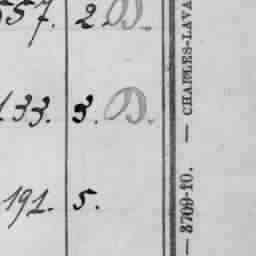 557. 2 D.
133. 3. D.
191. 5.
— 3709-10. — CHARLES-LAVA